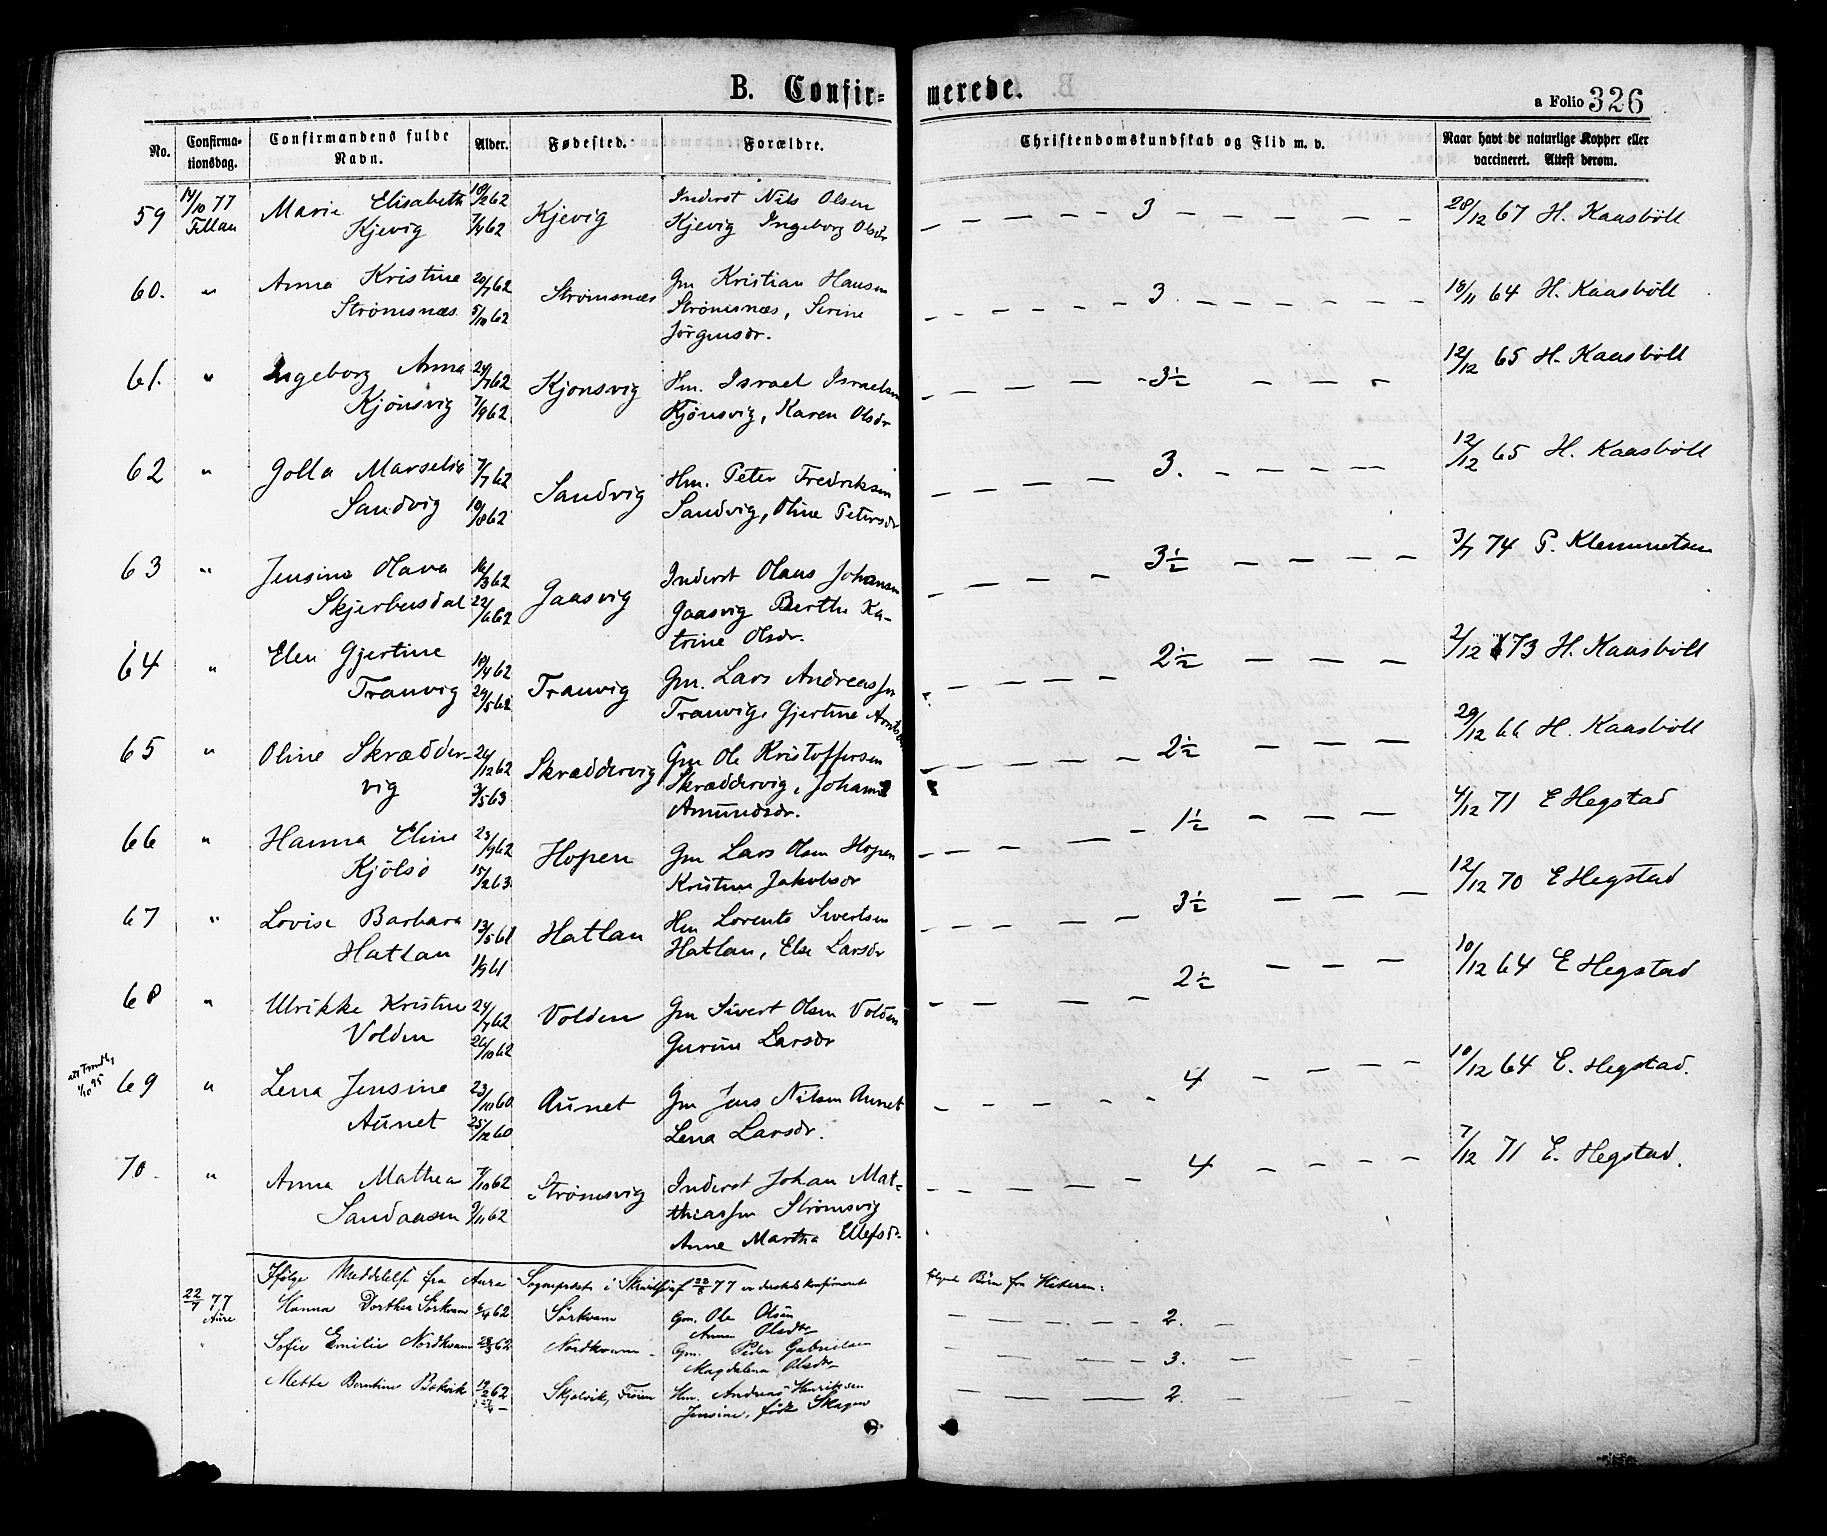 B. Confir-
merede.
a Folio 326
No.
Confirma-
tionsdag.
Confirmandens fulde
Navn.
Alder.
Fødested.
Forældre.
Christendomskundskab og Flid m. v.
Naar havt de naturlige Kopper eller
vaccineret. Attest derom.
59 14/10 77 Marie Elisabeth 10/2 62 Kjevig Inderst Nils Olsen — — — — 3 — — — — 28/12 67 H. Kaasböll
Fillan Kjevig 7/4 62 Kjevig Ingeborg Olsdr
60. " Anna Kristine 20/7 62 Strømsnæs Gm Kristian Hansen 3. 18/11 64 H. Kaasböll
Strømsnæs. 5/10 62 Strømsnæs, Serine
Jørgensdr.
61. " Ingeborg Anna 29/7 62 Kjönsvig Hm. Israel Israelsen 3½ 12/12 65 H. Kaasböll
Kjönsvig 7/9 62 Kjönsvig, Karen Olsdr
62 " Golla Marselia 7/7 62 Sandvig Hm. Peter Fredriksen 3. 12/12 65 H. Kaasböll
Sandvig 10/8 62 Sandvig, Oline Petersdr
63 " Jensine Olava 16/3 62 Gaasvig Inderst Olaus Johansen 3½ 3/7 74 P. Klemmetsen
Skjerbusdal 22/6 62 Gaasvig Berthe Ka-
trine Olsdr.
64 " Elen Gjertine 10/4 62 Tranvig Gm. Lars Andreassen 2½ 2/12 73 H. Kaasböll
Tranvig 29/5 62 Tranvig, Gjertine
65 " Oline Skrædder- 24/12 62 Skræddervig Gm Ole Kristoffersen 2½ 29/12 66 H. Kaasböll
vig 3/5 63 Skræddervig, Johanna
Amundsdr.
66 " Hanna Eline 23/9 62 Hopen Gm Lars Olsen Hopen 1½ 4/12 71 E Hegstad
Kjölsö 15/2 63 Kristine Jakobsdr
67 " Lovise Barbara 13/5 61 Hatlan Hm Lorents Sivertsen 3½ 12/12 70 E Hegstad
Hatlan 1/9 61 Hatlan, Else Larsdr
68 " Ulrikke Kristine 24/7 62 Volden Gm Sivert Olsen Volden 2½ 10/12 64 E Hegstad
Volden 26/10 62 Gurine Larsdr
69 " Lena Jensine 23/10 60 Aunet Gm Jens Nilsen Aunet 4 10/12 64 E. Hegstad.
Aunet 25/12 60 Lena Larsdr.
70. " Anna Mathea 7/10 62 Strømsvig Inderst Johan Mat- 4 7/12 71 E. Hegstad.
Sandaasen 9/11 62 thiassen Strømsvig
Anne Martha Ellefsdr.
Ifölge Meddelelse fra Aure Sogneprest i Skrivelse af 22/8 77 er derstedts konfirmeret følgende Börn fra Hitteren:
22/7 77 Hanna Dorthea Sørkvam 6/4 62 Sørkvam Gm. Ole Olsen 2.
Aure Anne Olsdtr
" Sofie Emilie Nordkvam 62 Nordkvam Gm. Peder Gabrielsen 3.
Magdelena Olsdtr
Mette Berntine 62 Skjelvik, Fröien Hm. Andreas Henriksen 2.
Jensine, född Skagen